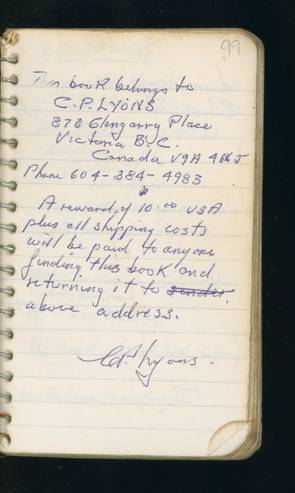 99
This book belongs to
C.P. LYONS
878 Glengarry Place
Victoria B.C.
Canada V9A
Phone 604-384-4983
A reward of 10.00 USA
plus all shipping costs
will be paid to anyone
finding this book and
returning it to sender.
above address.
C.P. Lyons.